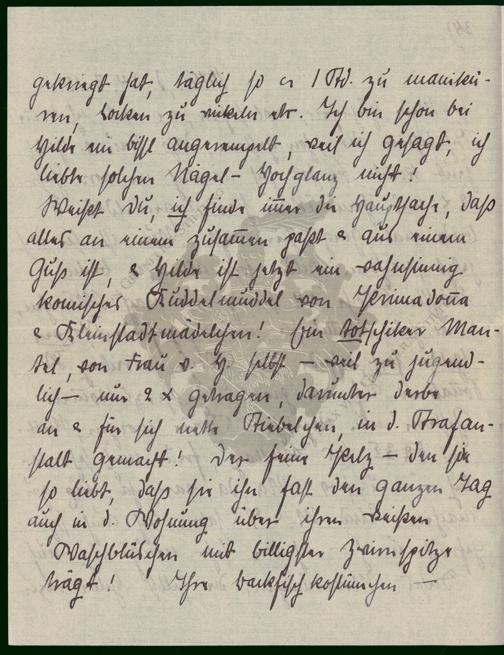 gekriegt hat, täglich so ca 1 Std. zu manikü-
ren, Locken zu wickeln etc. Ich bin schon bei
Hilde ein bissl angerempelt, weil ich gesagt, ich
liebte solchen Nägel-Hochglanz nicht!
Weißt Du, ich finde immer die Hauptsache, daß
alles an einem zusammen paßt & aus einem
Guß ist, & Hilde ist jetzt ein wahnsinnig
komisches Kuddelmuddel von Primadonna
& Kleinstadtmädelchen! Ein totschiker Man-
tel, von Frau v. H. selbst – weil zu jugend-
lich – nur 2 x getragen, darunter derbe
an & für sich nette Stiebelchen, in d. Strafan-
stalt gemacht! Der feine Pelz – den sie
so liebt, daß sie ihn fast den ganzen Tag
auch in d. Wohnung über ihren weißen
Waschblüschen mit billigster Zwirnspitze
trägt! Ihre Backfischkostümchen –